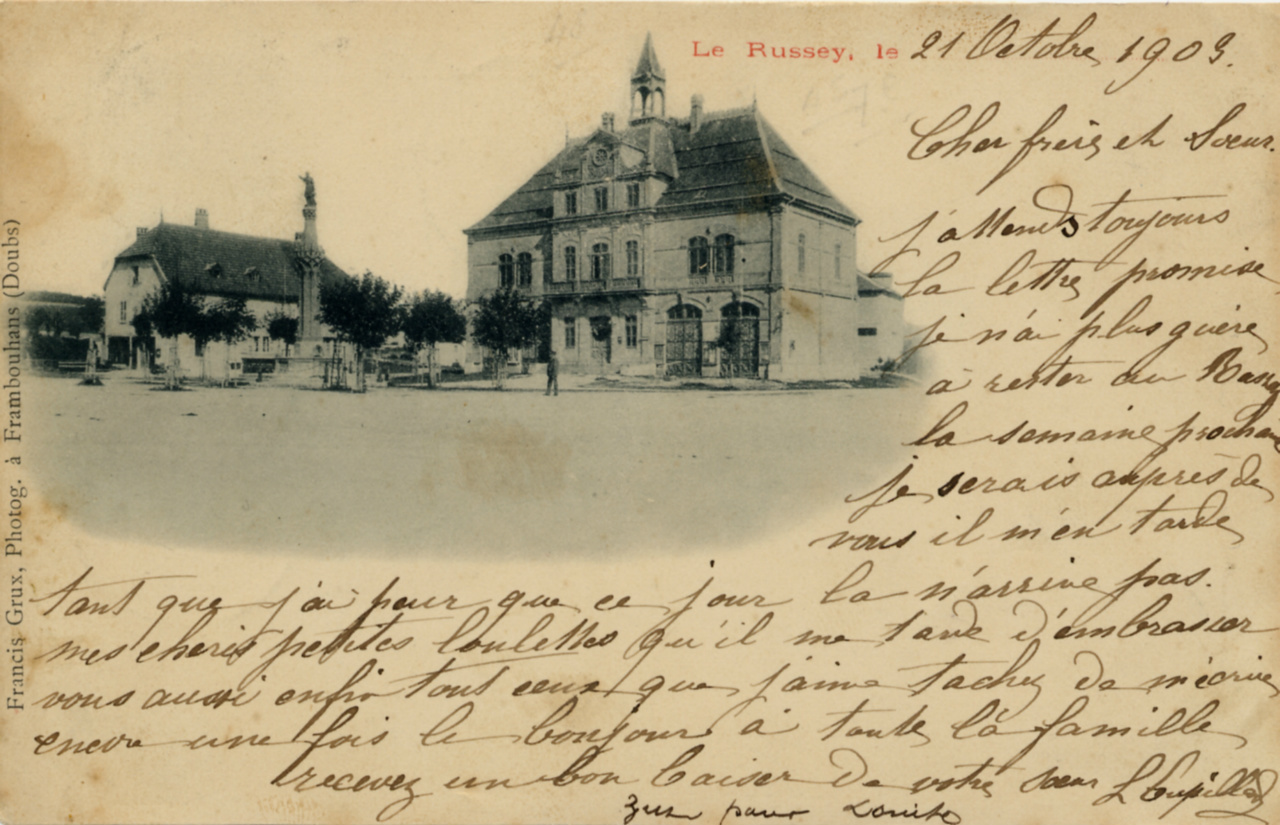 Le Russey, le 21 Octobre 1903.
Cher frère et Soeur.
j'attends toujours
la lettre promise
je n'ai plus guère
à rester au
la semaine prochaine
je serais auprès de
vous il m'en tarde
tant que j'ai peur que ce jour la n'arrive pas.
mes cheris petites loulettes qu'il me tarde d'embrasser
vous aussi enfin tout ceux que j'aime tachez de m'écrire
encore une fois le bonjour à toute la famille
recevez un bon baiser de votre soeur L
pour Louise
Francis Grux, Photog. à Frambouhans (Doubs)